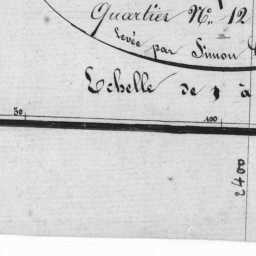 Quartier No. 12
Levée par Simon
Echelle de 1 à
50 100
2400